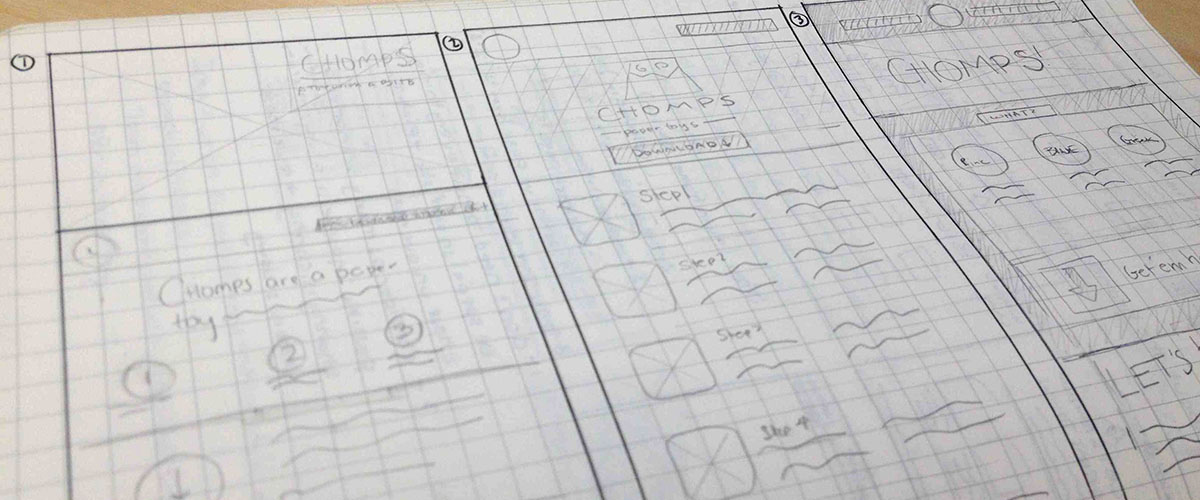 1
CHOMPS
CHOMPS are a paper
toy
1
2
3
2
GO
CHOMPS
paper toys
DOWNLOAD
Step 1
Step 2
Step 3
Step 4
3
CHOMPS!
WHAT?
BLUE
Get 'em
LET'S